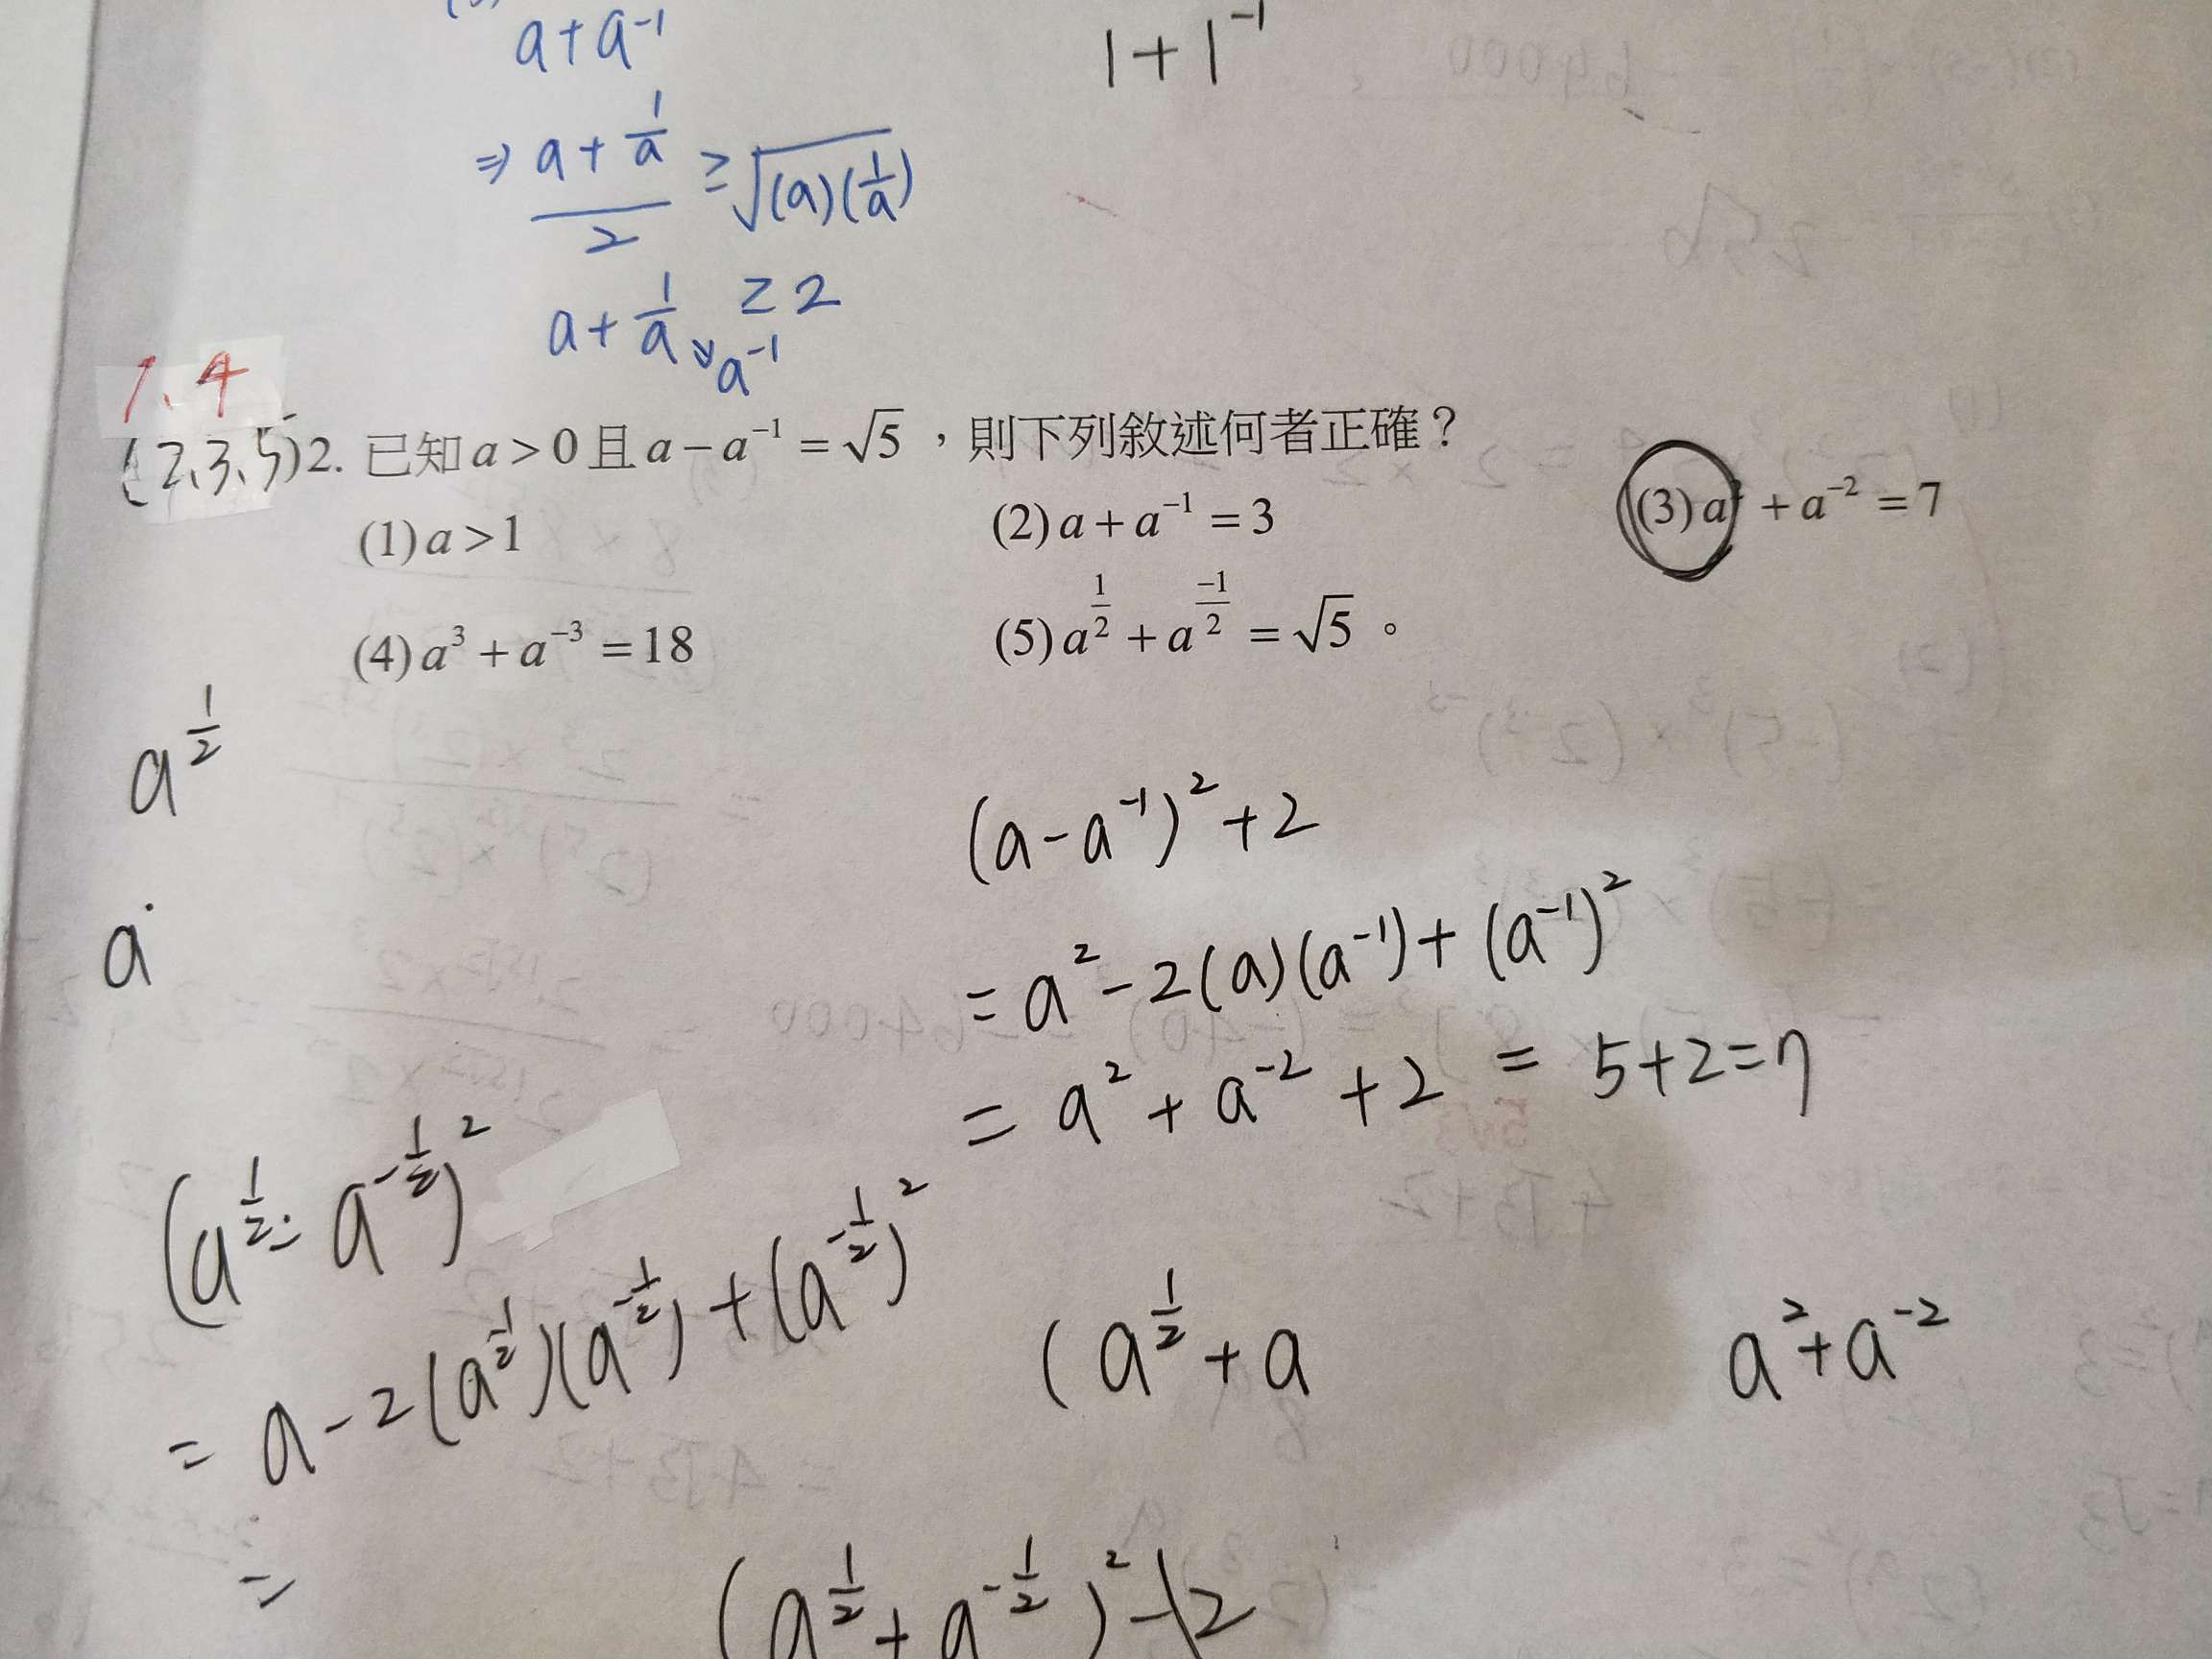 a + a⁻¹
1 + 1⁻¹
⇒ (a + 1/a)/2 ≥ √((a)(1/a))
a + 1/a ≥ 2
↘ a⁻¹
1、4
(2、3、5)2. 已知 a > 0 且 a − a⁻¹ = √5 ，則下列敘述何者正確？
(1) a > 1 (2) a + a⁻¹ = 3 (3) a² + a⁻² = 7
(4) a³ + a⁻³ = 18 (5) a^(1/2) + a^(−1/2) = √5 。
a^(1/2)
(a − a⁻¹)² + 2
a
= a² − 2(a)(a⁻¹) + (a⁻¹)²
= a² + a⁻² + 2 = 5 + 2 = 7
(a^(1/2) − a^(−1/2))²
= a − 2(a^(1/2))(a^(−1/2)) + (a^(−1/2))²
(a^(1/2) + a
a² + a⁻²
=
(a^(1/2) + a^(−1/2))² − 2